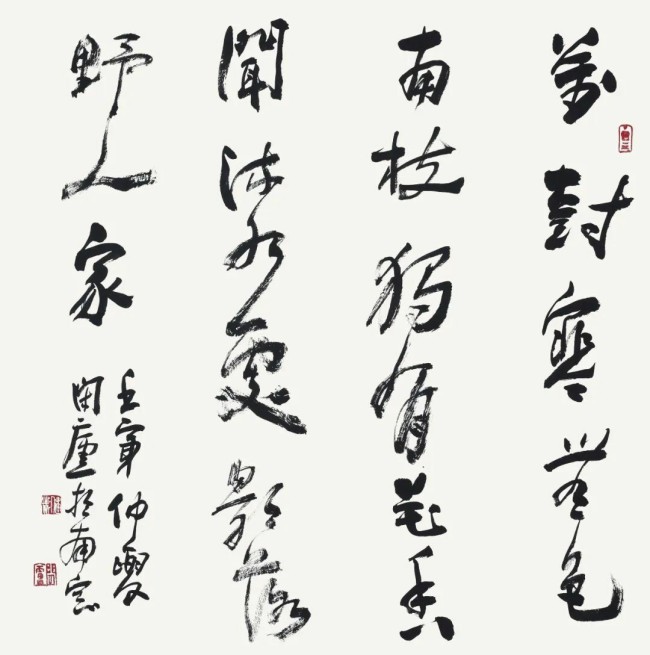 萬樹寒無色
南枝獨有花香
聞流水處影落
野人家
壬寅仲夏
廬於南